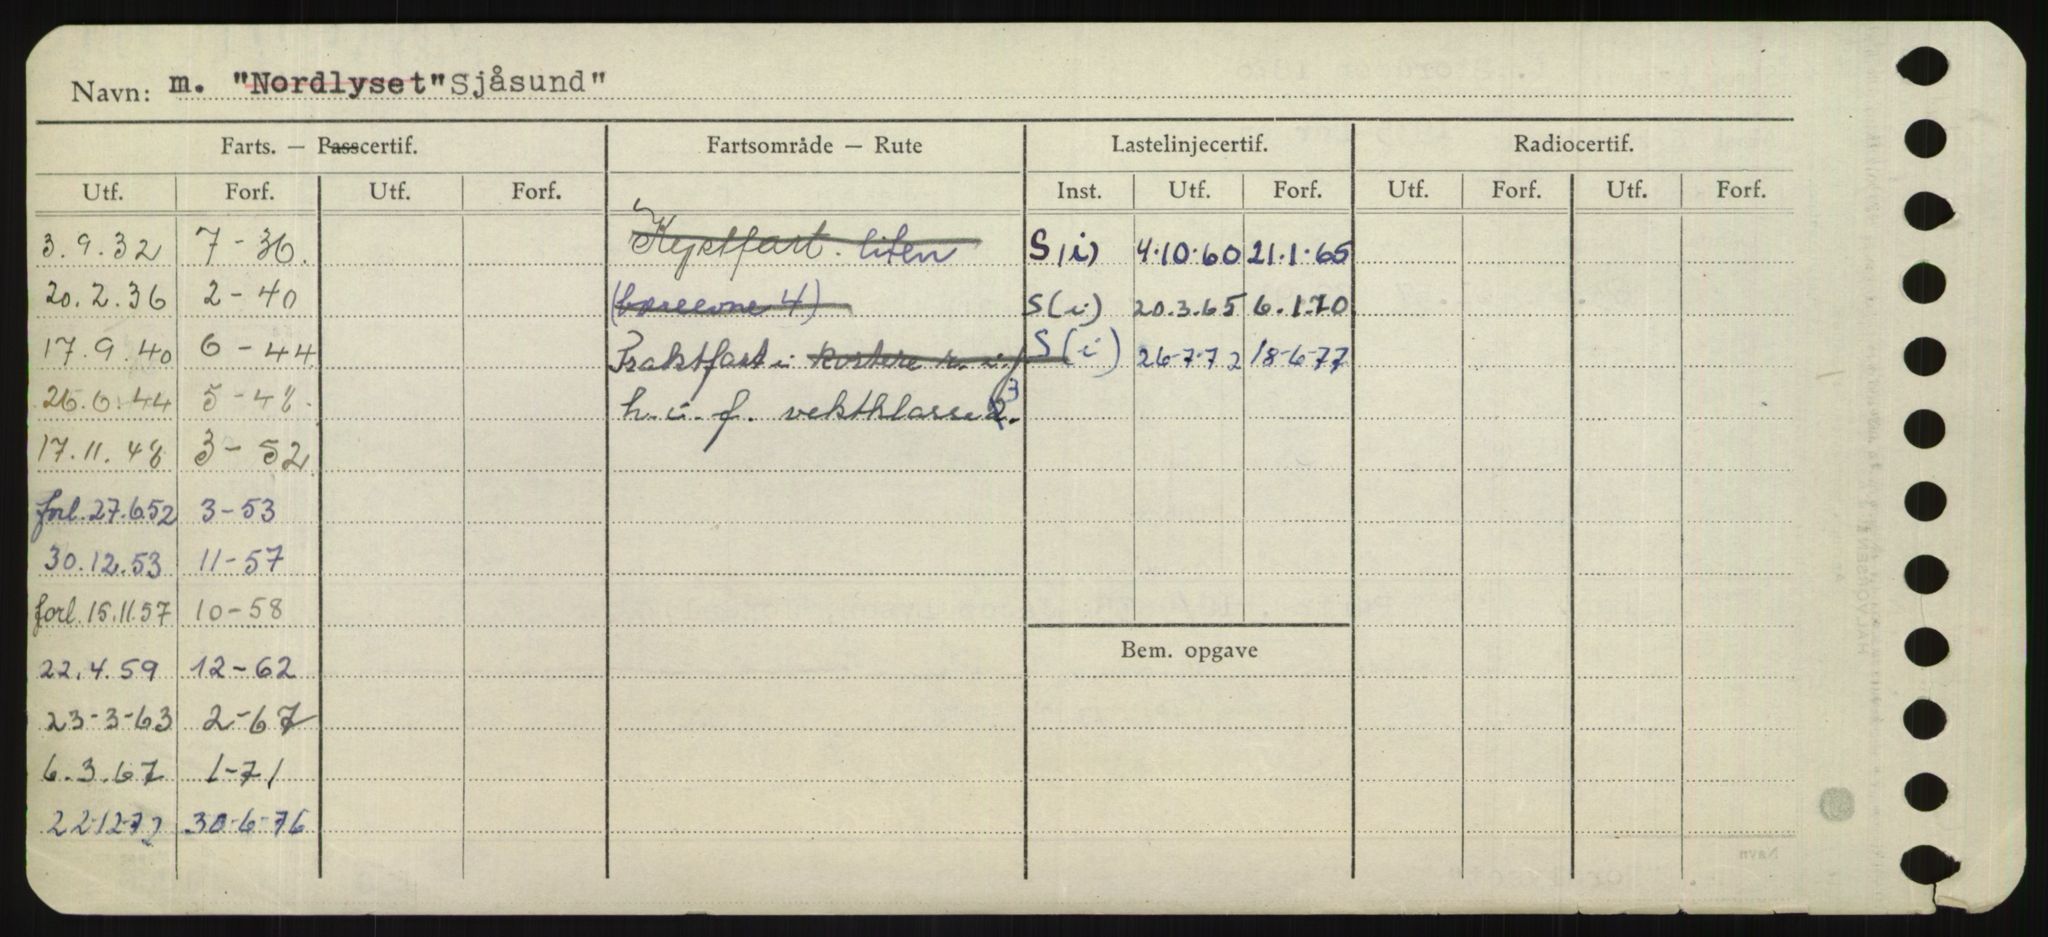 Navn: m. "Nordlyset" Sjåsund"
Farts. — Passcertif. Fartsområde — Rute Lastelinjecertif. Radiocertif.
Utf. Forf. Utf. Forf. Inst. Utf. Forf. Utf. Forf. Utf. Forf.
3.9.32 7-36. Kystfart. liten S(i) 4.10.60 21.1.65
20.2.36 2-40 (bæreevne 4) S(i) 20.3.65 6.1.70
17.9.40 6-44 Fraktfart i S(i) 26-7-72 18-6-77
26.6.44 5-48. h.i.f. vektklasse 2. 3
17.11.48 3-52
forl. 27.6.52 3-53
30.12.53 11-57
forl. 15.11.57 10-58
Bem. opgave
22.4.59 12-62
23-3-63 2-67
6.3.67 1-71
22-12-72 30-6-76
Navn